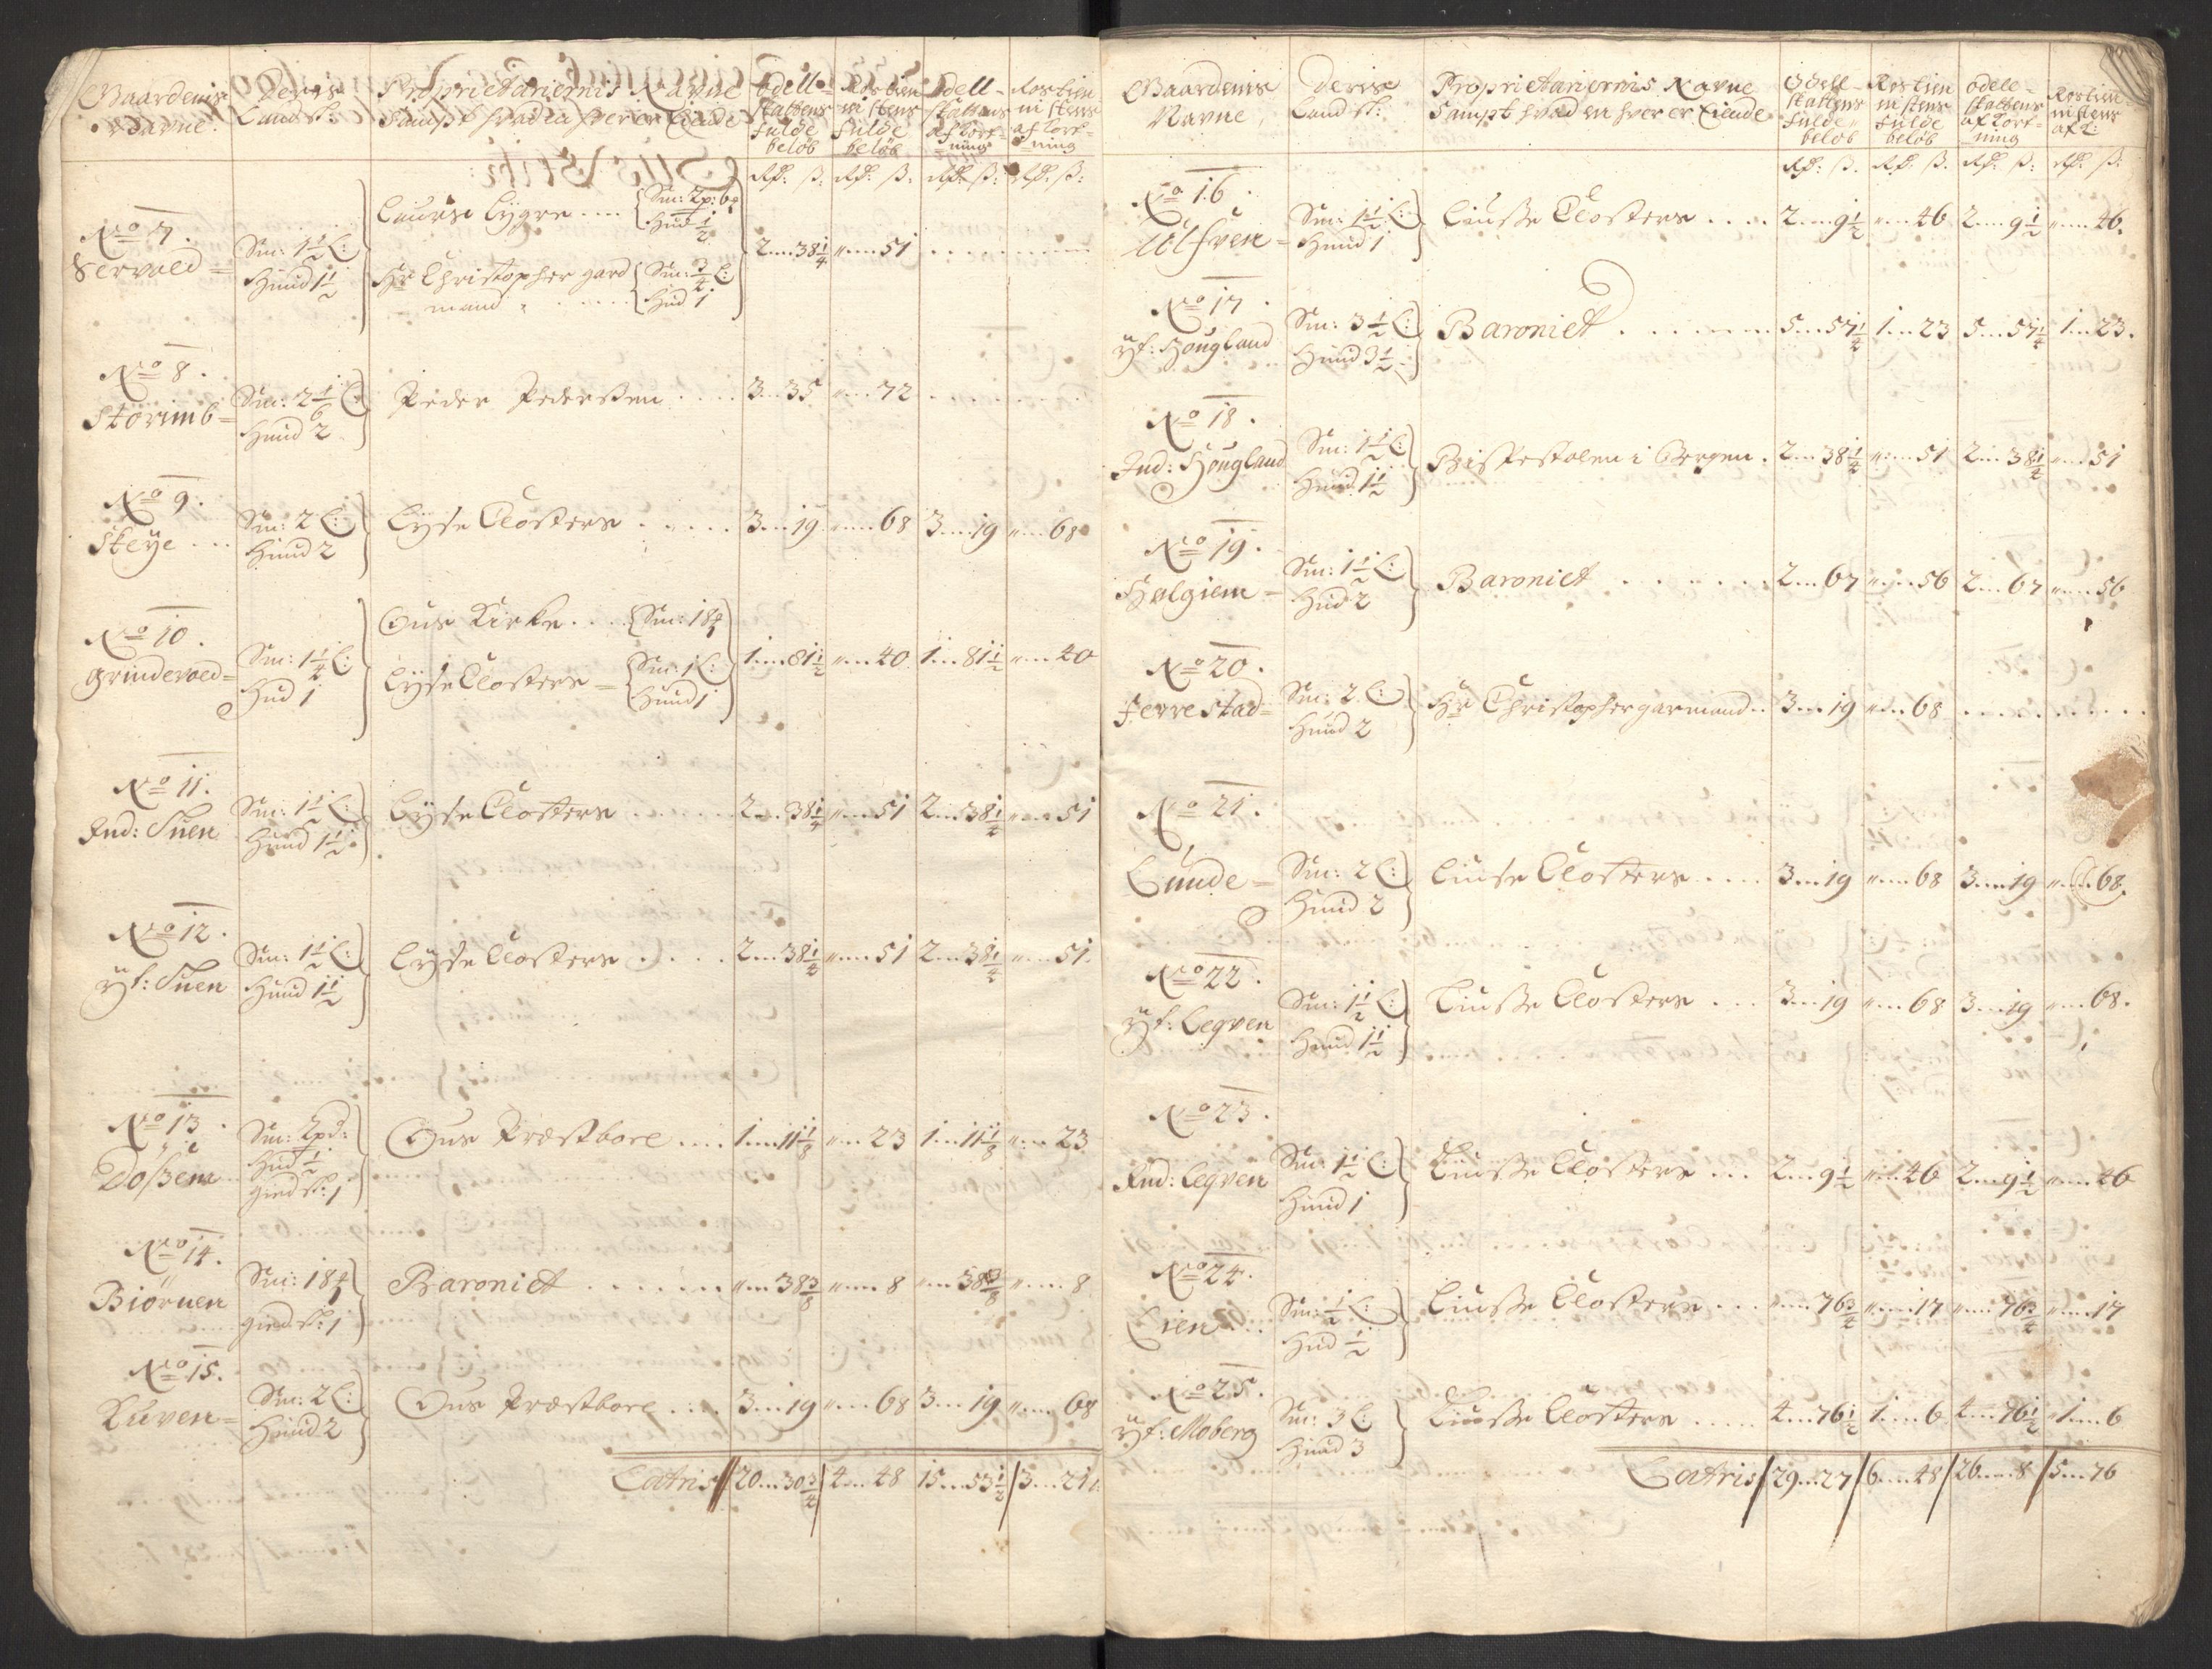 Gaardenis
Navne
Deris
Landsk:
Proprietariernis Navne
Sampt hvad en hver er Eiende
Odell-
skattens
fulde
beløb
Rostien
nistens
fulde
beløb
Odell-
skattens
afkort-
ning
Rostien
nistens
afkort-
ning
Rd: ß: Rd: ß: Rd: ß: Rd: ß:
No 7.
Servold
Sm: 1½ L:
Huud 1½
Lauers Lygre .... Sm: 2p: 6
Hud ½
Hr Christopher gard
mand Sm: ¾ L:
Hud 1
2 38¼ 51
No 8.
Storimb
Sm: 2 1/6 L:
Huud 2
Peder Pedersen 3 35 72
No 9.
Skeÿe
Sm: 2 L:
Huud 2
Lyse Closters 3 19 68 3 19 68
No 10.
Grindevold
Sm: 1¼ L:
Hud 1
Ous Kirke .... Sm: 18
Lyse Closters Sm: 1 L:
Huud 1
1 81½ 40 1 81½ 40
No 11.
Ind: Suen
Sm: 1½ L:
Huud 1½
Lyse Closters 2 38¼ 51 2 38¼ 51
No 12.
Yt: Suen
Sm: 1½ L:
Huud 1½
Lyse Closters 2 38¼ 51 2 38¼ 51
No 13.
Døssem
Sm: 2pd:
Hud ½
giedsk: 1
Ous Præstbore 1 11⅛ 23 1 11⅛ 23
No 14.
Biørnen
Sm: 18
giedsk: 1
Baroniet 38⅜ 8 38⅜ 8
No 15.
Kuven
Sm: 2 L:
Huud 2
Ous Præstbore 3 19 68 3 19 68
Latris 20 30¾ 4 48 15 53½ 3 21
Gaardenis
Navne
Deris
Landsk:
Proprietariernis Navne
Sampt hvad en hver er Eiende
Odell-
skattens
fulde
beløb
Rostien
nistens
fulde
beløb
Odele-
skattens
afkort-
ning
Rostien
nistens
afk:
Rd: ß: Rd: ß: Rd: ß: Rd: ß:
No 16.
Ulfven
Sm: 1½ L:
Huud 1
Liusse Closters 2 9½ 46 2 9½ 46
No 17.
Yt: Hougland
Sm: 3½ L:
Huud 3½
Baroniet 5 57¼ 1 23 5 57¼ 1 23
No 18.
Ind: Hougland
Sm: 1½ L:
Huud 1½
Bispestolen i Bergen 2 38¼ 51 2 38½ 51
No 19.
Hølgiem
Sm: 1½ L:
Hud 2
Baroniet 2 67 56 2 67 56
No 20.
Ferrestad
Sm: 2 L:
Huud 2
Hr Christopher garmand 3 19 68
No 21.
Lunde
Sm: 2 L:
Huud 2
Liuse Closters 3 19 68 3 19 68
No 22.
Yt: Leqven
Sm: 1½ L:
Huud 1½
Liusse Closters 3 19 68 3 19 68
No 23.
Ind: Leqven
Sm: 1½ L:
Huud 1
Liusse Closters 2 9½ 46 2 9½ 46
No 24.
Lien
Sm: ½ L:
Hud ½
Liusse Closters 76¾ 17 76¾ 17
No 25.
Yt: Moberg
Sm: 3 L:
Huud 3
Liusse Closters 4 76½ 1 6 4 76½ 1 6
Latris 29 27 6 48 26 8 5 76